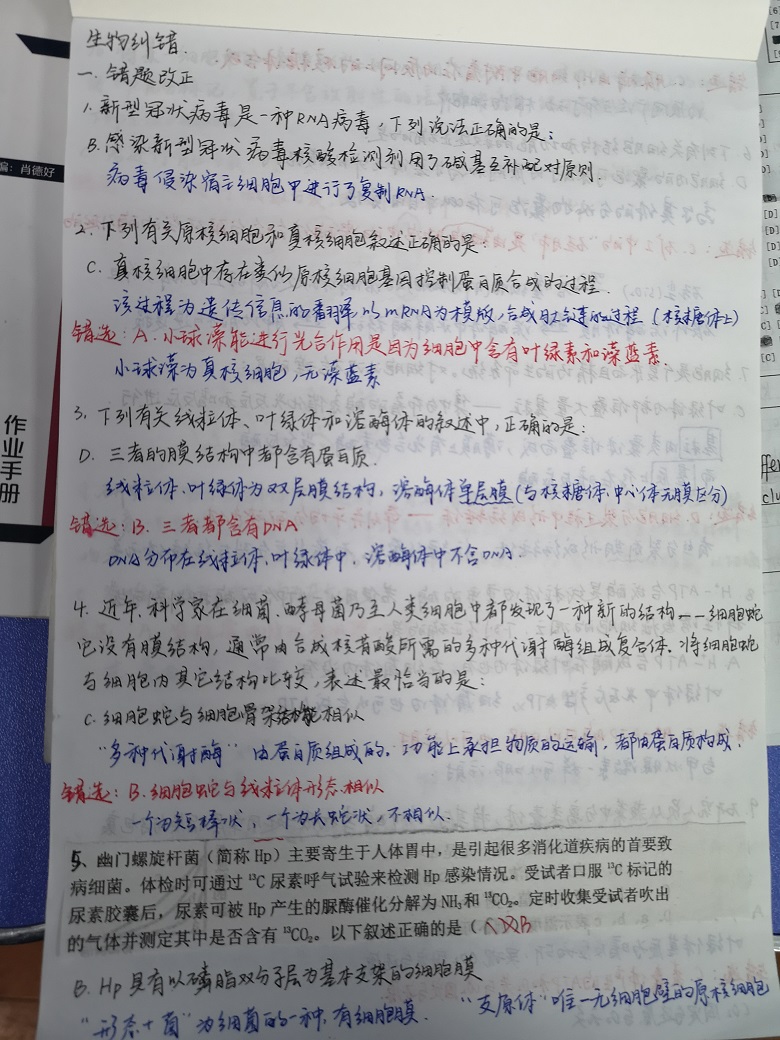 生物纠错.
一. 错题改正
1. 新型冠状病毒是一种RNA病毒，下列说法正确的是：
B. 感染新型冠状病毒核酸检测利用了碱基互补配对原则.
病毒侵染宿主细胞中进行了复制RNA.
2. 下列有关原核细胞和真核细胞叙述正确的是：
C. 真核细胞中存在类似原核细胞基因控制蛋白质合成的过程.
该过程为遗传信息的翻译，以mRNA为模版，合成肽链的过程（核糖体上）
错选：A. 小球藻能进行光合作用是因为细胞中含有叶绿素和藻蓝素.
小球藻为真核细胞，无藻蓝素
3. 下列有关线粒体、叶绿体和溶酶体的叙述中，正确的是：
D. 三者的膜结构中都含有蛋白质.
线粒体、叶绿体为双层膜结构，溶酶体单层膜（与核糖体、中心体无膜区分）
错选：B. 三者都含有DNA
DNA分布在线粒体、叶绿体中，溶酶体中不含DNA.
4. 近年，科学家在细菌、酵母菌乃至人类细胞中都发现了一种新的结构——细胞蛇
它没有膜结构，通常由合成核苷酸所需的多种代谢酶组成复合体. 将细胞蛇
与细胞内其它结构比较，表述最恰当的是：
C. 细胞蛇与细胞骨架结构相似
“多种代谢酶” 由蛋白质组成的. 功能上承担物质的运输，都由蛋白质构成.
错选：B. 细胞蛇与线粒体形态相似
一个为短棒状，一个为长蛇状，不相似.
5、幽门螺旋杆菌（简称 Hp）主要寄生于人体胃中，是引起很多消化道疾病的首要致
病细菌。体检时可通过 ¹³C 尿素呼气试验来检测 Hp 感染情况。受试者口服 ¹³C 标记的
尿素胶囊后，尿素可被 Hp 产生的脲酶催化分解为 NH₃和 ¹³CO₂。定时收集受试者吹出
的气体并测定其中是否含有 ¹³CO₂。以下叙述正确的是（ B
B. Hp 具有以磷脂双分子层为基本支架的细胞膜
“形态+菌”为细菌的一种，有细胞膜. “支原体”唯一无细胞壁的原核细胞
编：肖德好
作业手册